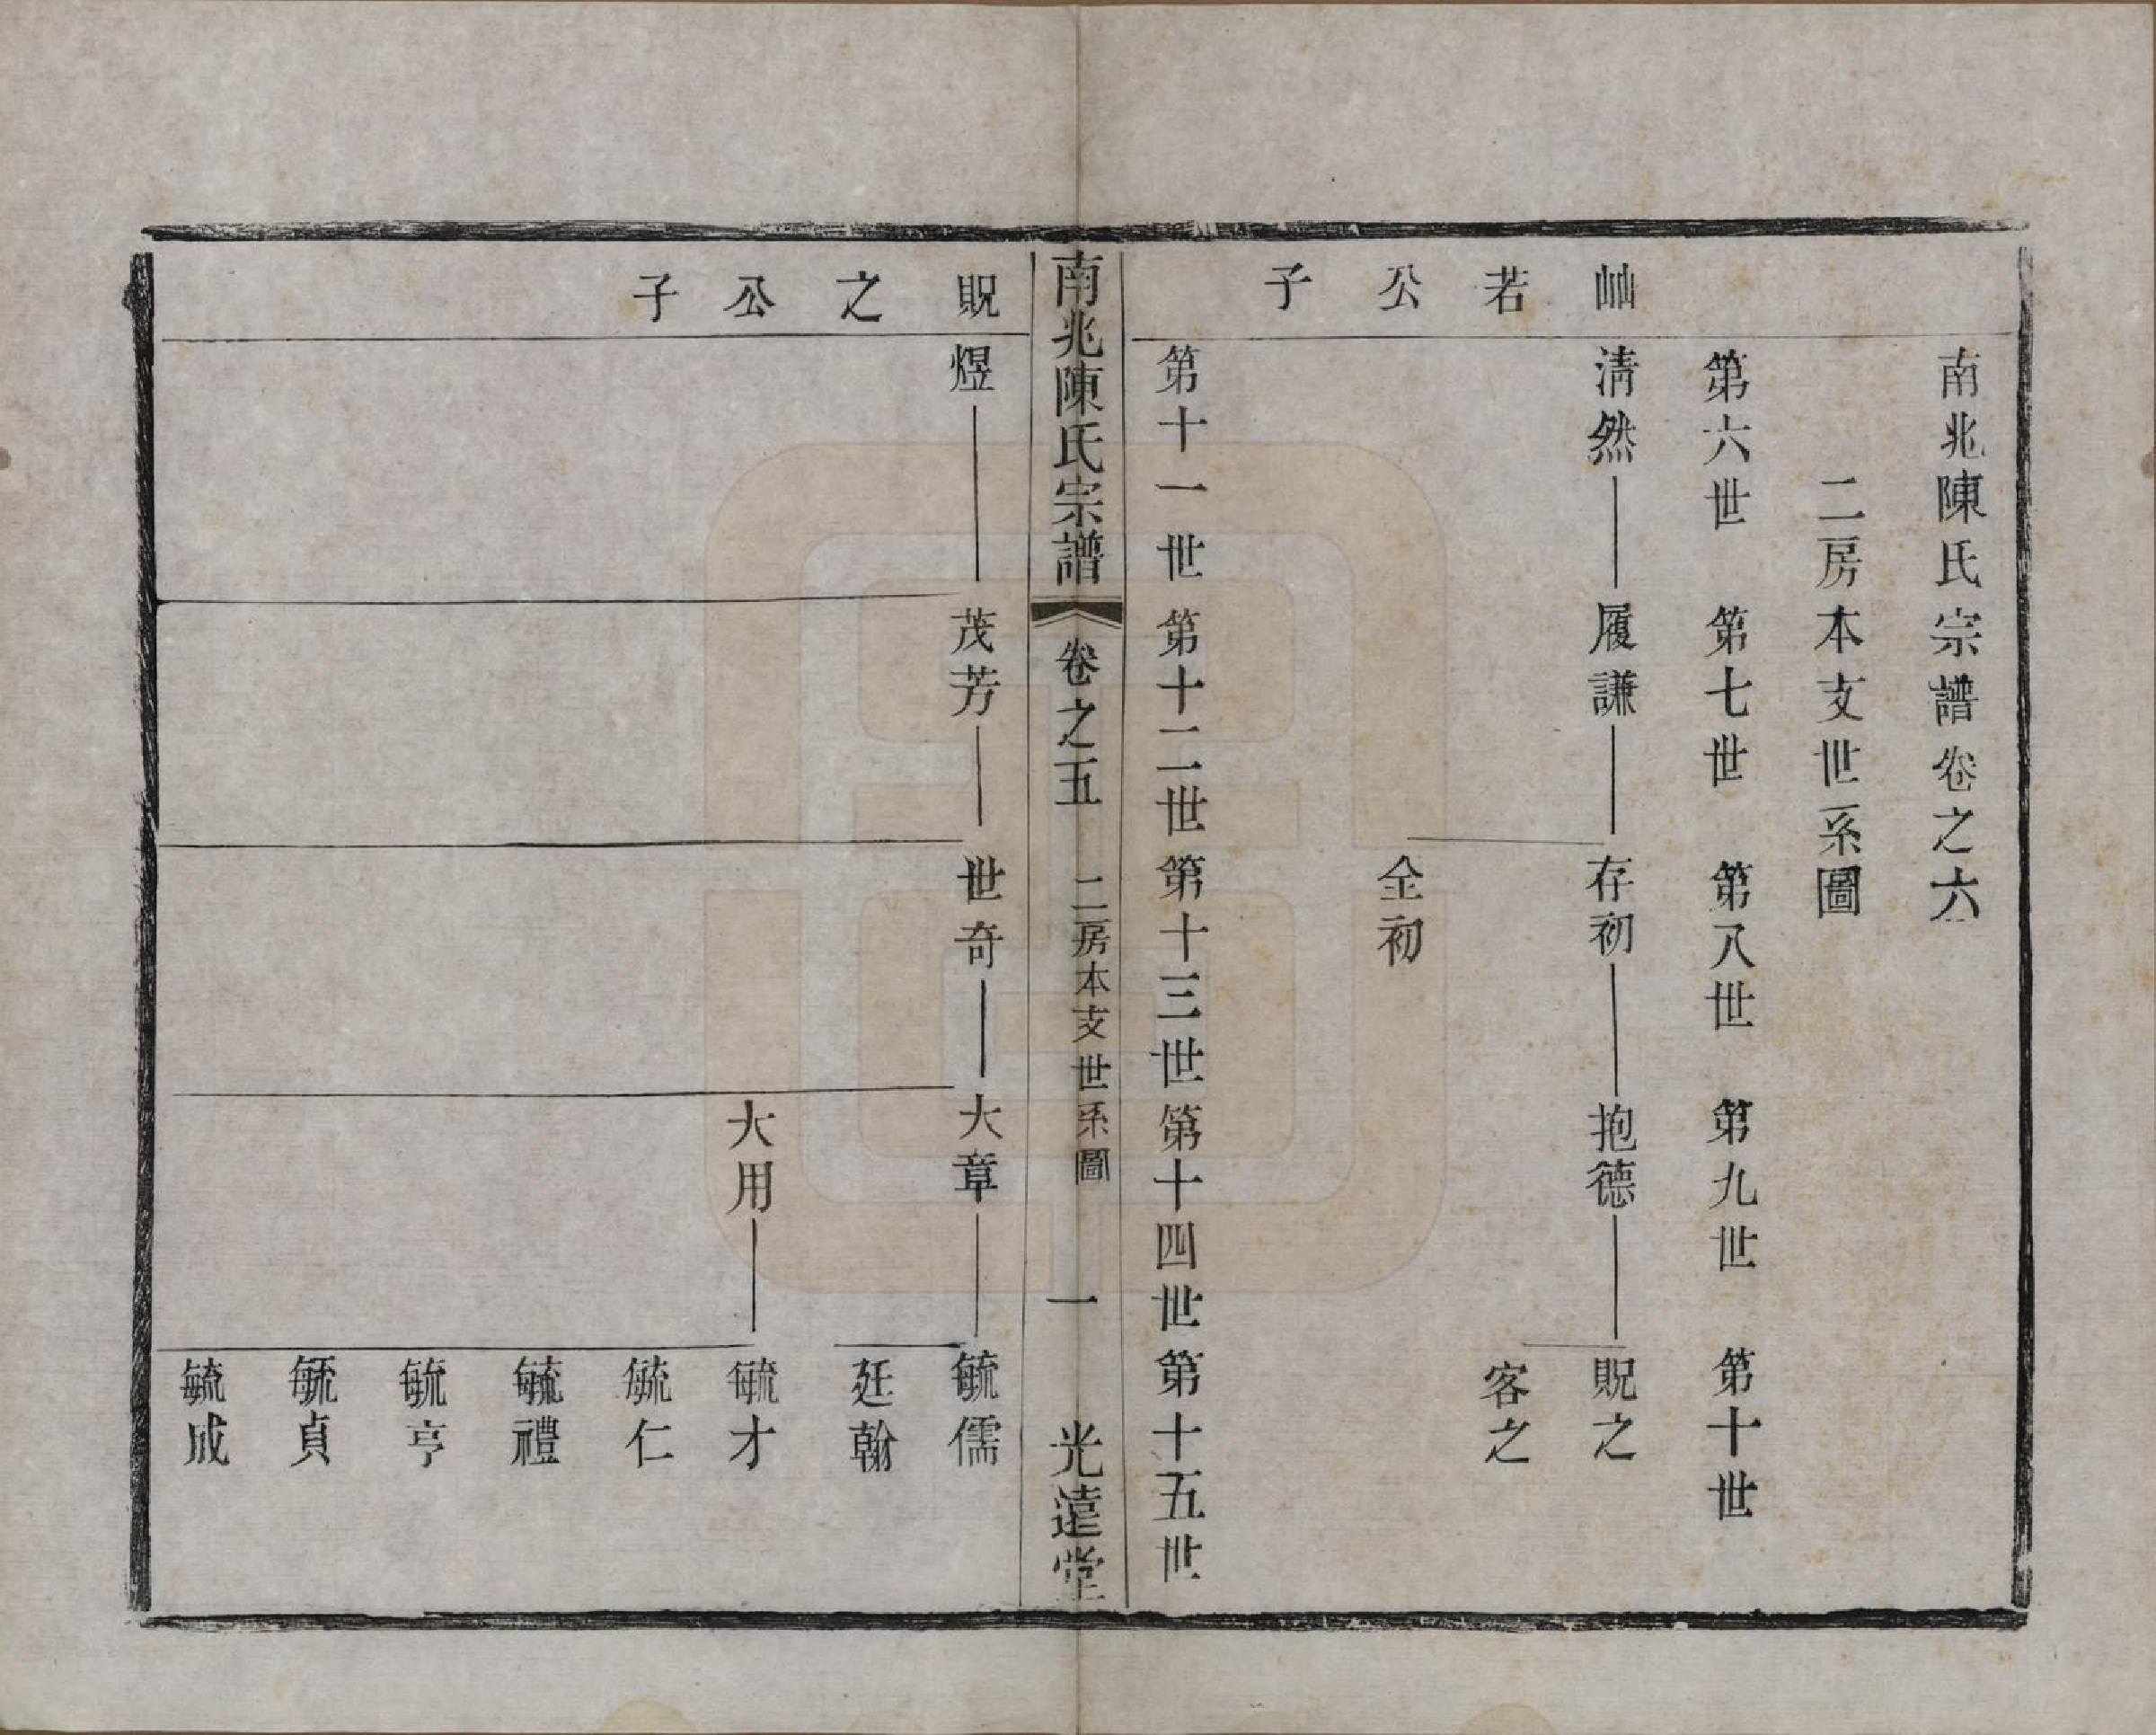 南兆陳氏宗譜卷之六
二房本支世系圖
第六世 第七世 第八世 第九世 第十世
岫若公子
清然 履謙 存初 抱德 貺之
客之
全初
第十一世 第十二世 第十三世 第十四世 第十五世
南兆陳氏宗譜 卷之五 二房本支世系圖 一 光遠堂
貺之公子
煜 茂芳 世奇 大章 毓儒
廷翰
大用 毓才
毓仁
毓禮
毓亨
毓貞
毓成